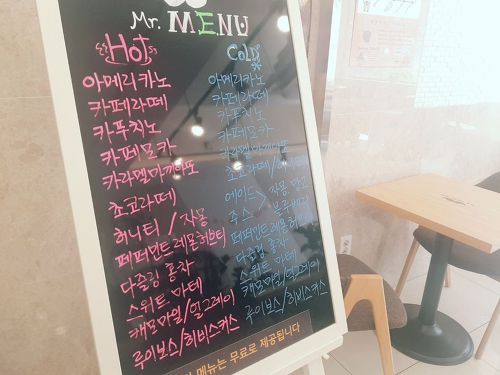 Mr. MENU
Hot
아메리카노
카페라떼
카푸치노
카페모카
카라멜마끼아또
쵸코라떼
허니티 / 자몽
페퍼민트레몬허브티
다즐링 홍차
스위트 마테
캐모마일/얼그레이
루이보스/히비스커스
COLD
아메리카노
카페라떼
카푸치노
카페모카
카라멜마끼아또
쵸코라떼/
에이드 > 자몽
쥬스 블루베리
페퍼민트레몬허브티
다즐링 홍차
스위트 마테
캐모마일/얼그레이
루이보스/히비스커스
메뉴는 무료로 제공됩니다